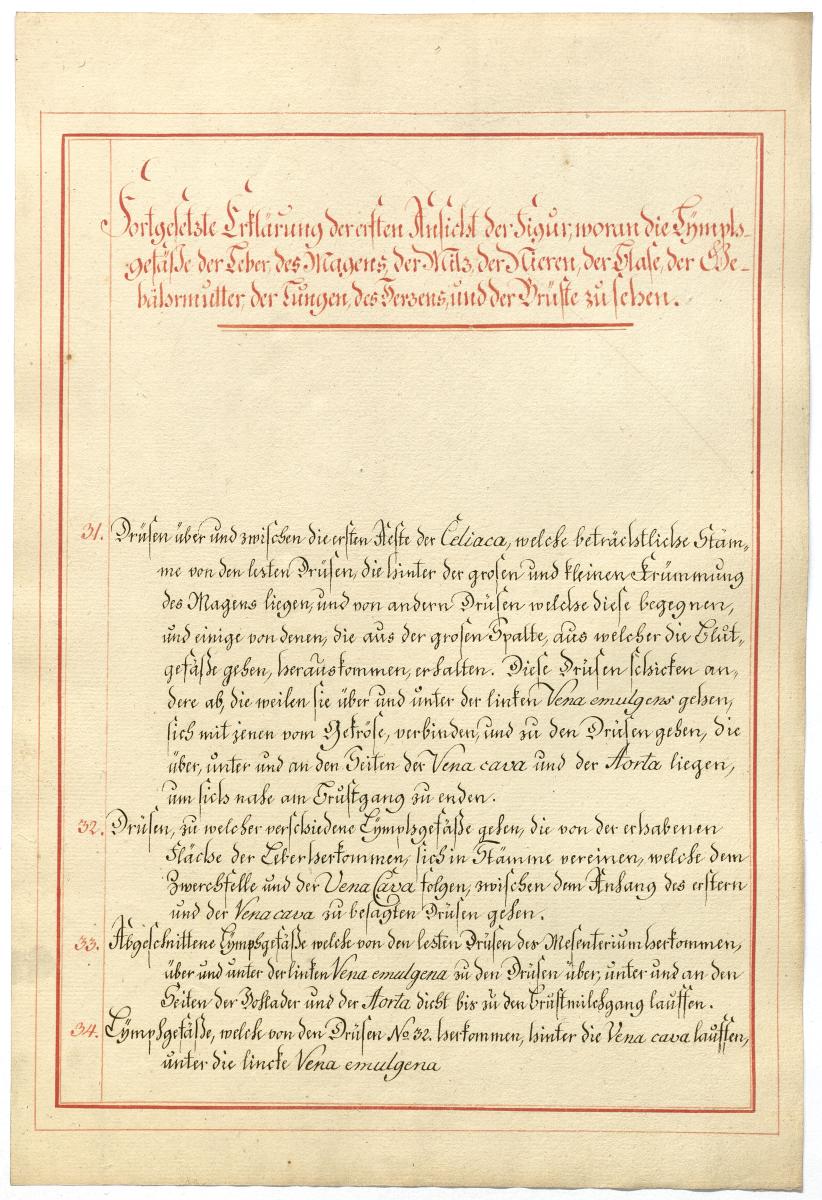 Fortgesetzte Erklärung der ersten Ansicht der Figur, woran die Lymph-
gefäße der Leber, des Magens, der Milz, der Nieren, der Blase, der Ge-
bährmutter, der Lungen, des Herzens, und der Brüste zu sehen.
31. Drüsen über und zwischen die ersten Aeste der Celiaca, welche beträchtliche Stäm-
me von den lesten Drüsen, die hinter der grosen und kleinen Krümmung
des Magens liegen, und von andern Drüsen welche diese begegnen,
und einige von denen, die aus der grosen Spalte, aus welcher die Blut-
gefäße gehen, herauskommen, erhalten. Diese Drüsen schicken an-
dere ab, die weilen sie über und unter der linken Vena emulgens gehen,
sich mit jenen vom Gekröse, verbinden, und zu den Drüsen gehen, die
über, unter und an den Seiten der Vena cava und der Aorta liegen,
um sich nahe am Brustgang zu enden.
32. Drüsen, zu welcher verschiedene Lymphgefäße gehen, die von der erhabenen
Fläche der Leber herkommen, sich in Stämme vereinen, welche dem
Zwerchfelle und der Vena Cava folgen, zwischen dem Anhang des erstern
und der Vena cava zu besagten Drüsen gehen.
33. Abgeschnittene Lymphgefäße welche von den lesten Drüsen des Mesenterium herkommen,
über und unter der linken Vena emulgena zu den Drüsen über, unter und an den
Seiten der Hohlader und der Aorta dicht bis zu den Brüstmilchgang lauffen.
34. Lymphgefäße, welche von den Drüsen No 32. herkommen, hinter die Vena cava lauffen,
unter die lincke Vena emulgena